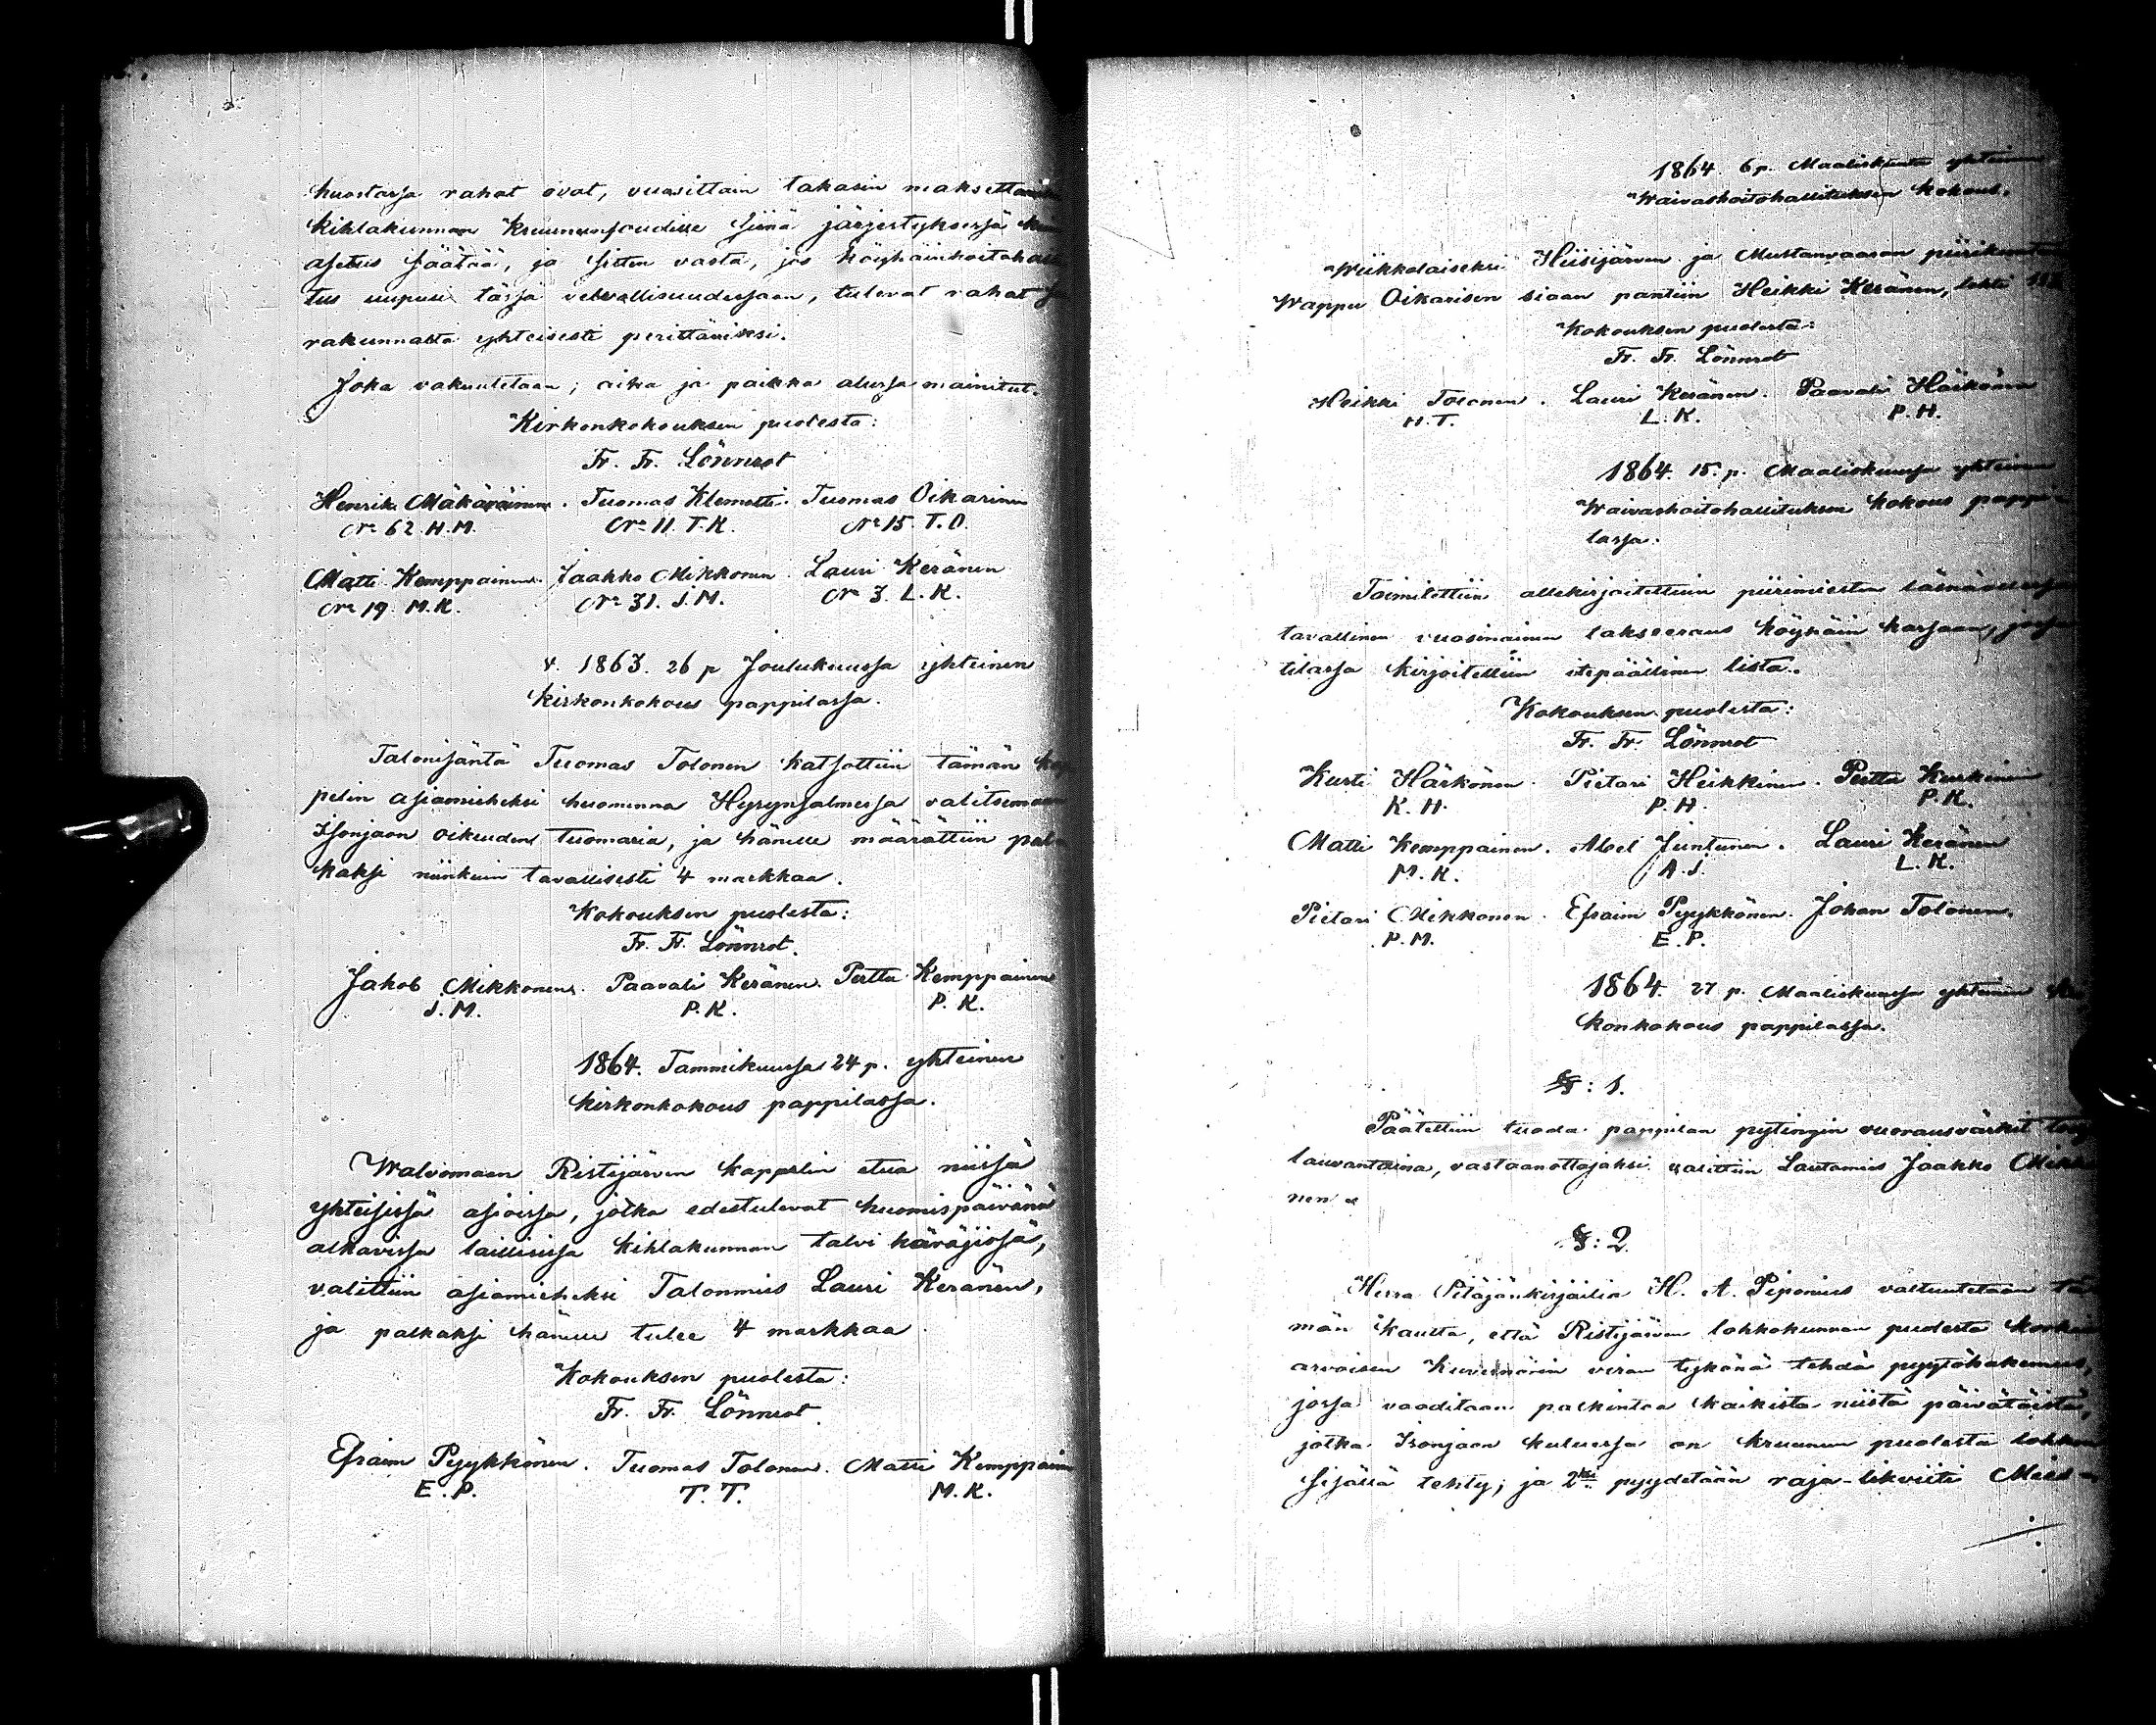 huostassa rahat ovat, vuosittain takasin maksettaviksi
kihlakunnan kruununfoudille siinä järjestyksessä kuin
asetus säätää, ja sitten vasta, jos köyhäinhoitohalli
tus uupusi tässä velvollisuudessaan, tulevat rahat se
rakunnalta yhteisesti perittäväksi.
Joka vakuutetaan; aika ja paikka alussa mainitut.
Kirkonkokouksen puolesta:
Fr. Fr. Lönnrot
Henrik Mäkäräinen. Tuomas Klemetti. Tuomas Oikarinen
No 62. H.M. No 11. T.K. No 15. T.O.
Matti Kemppainen. Jaakko Mikkonen. Lauri Keränen
No 19. M.K. No 31. J.M. No 3. L.K.
v. 1863. 26 p Joulukuussa yhteinen
kirkonkokous pappilassa.
Talonisäntä Tuomas Tolonen katsottiin tämän kap
pelin asiamieheksi huomenna Hyrynsalmessa valitsemaan
Isonjaon oikeuden tuomaria, ja hänelle määrättiin pal
kaksi niinkuin tavallisesti 4 markkaa.
Kokouksen puolesta:
Fr. Fr. Lönnrot.
Jakob Mikkonen. Paavali Keränen. Pertta Kemppainen
J.M. P.K. P.K.
1864. Tammikuussa 24 p. yhteinen
kirkonkokous pappilassa.
Walvomaan Ristijärven kappelin etua niissä
yhteisissä asioissa, jotka edestulevat huomispäivänä
alkavissa laillisissa kihlakunnan talvi käräjissä,
valittiin asiamieheksi Talonmies Lauri Keränen,
ja palkaksi hänelle tulee 4 markkaa.
Kokouksen puolesta:
Fr. Fr. Lönnrot.
Efraim Pyykkönen. Tuomas Tolonen. Matti Kemppainen
E.P. T.T. M.K.
1864. 6 p. Maaliskuuta yhteinen
Waivashoitohallituksen kokous.
Wiikkolaiseksi Hiisijärven ja Mustanvaaran piirikuntaan
Wappu Oikarisen siaan pantiin Heikki Keränen, lehti
Kokouksen puolesta:
Fr. Fr. Lönnrot
Heikki Tolonen. Lauri Keränen. Paavali Häikönen
H.T. L.K. P.H.
1864. 15. p. Maaliskuussa yhteinen
Waivashoitohallituksen kokous pappi
lassa.
Toimitettiin allekirjoitettuin piirimiesten läsnäollessa
tavallinen vuosinainen takseeraus köyhäin kassaan, jossa
tilassa kirjoitettiin itepäällinen lista.
Kokouksen puolesta:
Fr. Fr. Lönnrot
Kusti Härkönen. Pietari Heikkinen. Pertta Kurkinen
K.H. P.H. P.K.
Matti Kemppainen. Abel Juntunen. Lauri Keränen
M.K. A.J. L.K.
Pietari Mikkonen. Efraim Pyykkönen. Johan Tolonen.
P.M. E.P.
1864. 27 p. Maaliskuussa yhteinen kir
konkokous pappilassa.
§: 1.
Päätettiin tuoda pappilan pytingin vuorausvärkit
lauvantaina, vastaanottajaksi valittiin Lautamies Jaakko Mikko
nen.
§: 2.
Herra Pitäjänkirjailia H. A. Piponius valtuutetaan tä
män kautta, että Ristijärven lohkokunnan puolesta korkia
arvoisen Kuvernörin viran tykönä tehdä pyytöhakemus,
jossa vaaditaan palkintoa kaikista niistä päivätöistä,
jotka Isonjaon kuluessa on kruunun puolesta lohkon
sisällä tehty; ja 2ksi pyydetään raja-likviiti Mies-